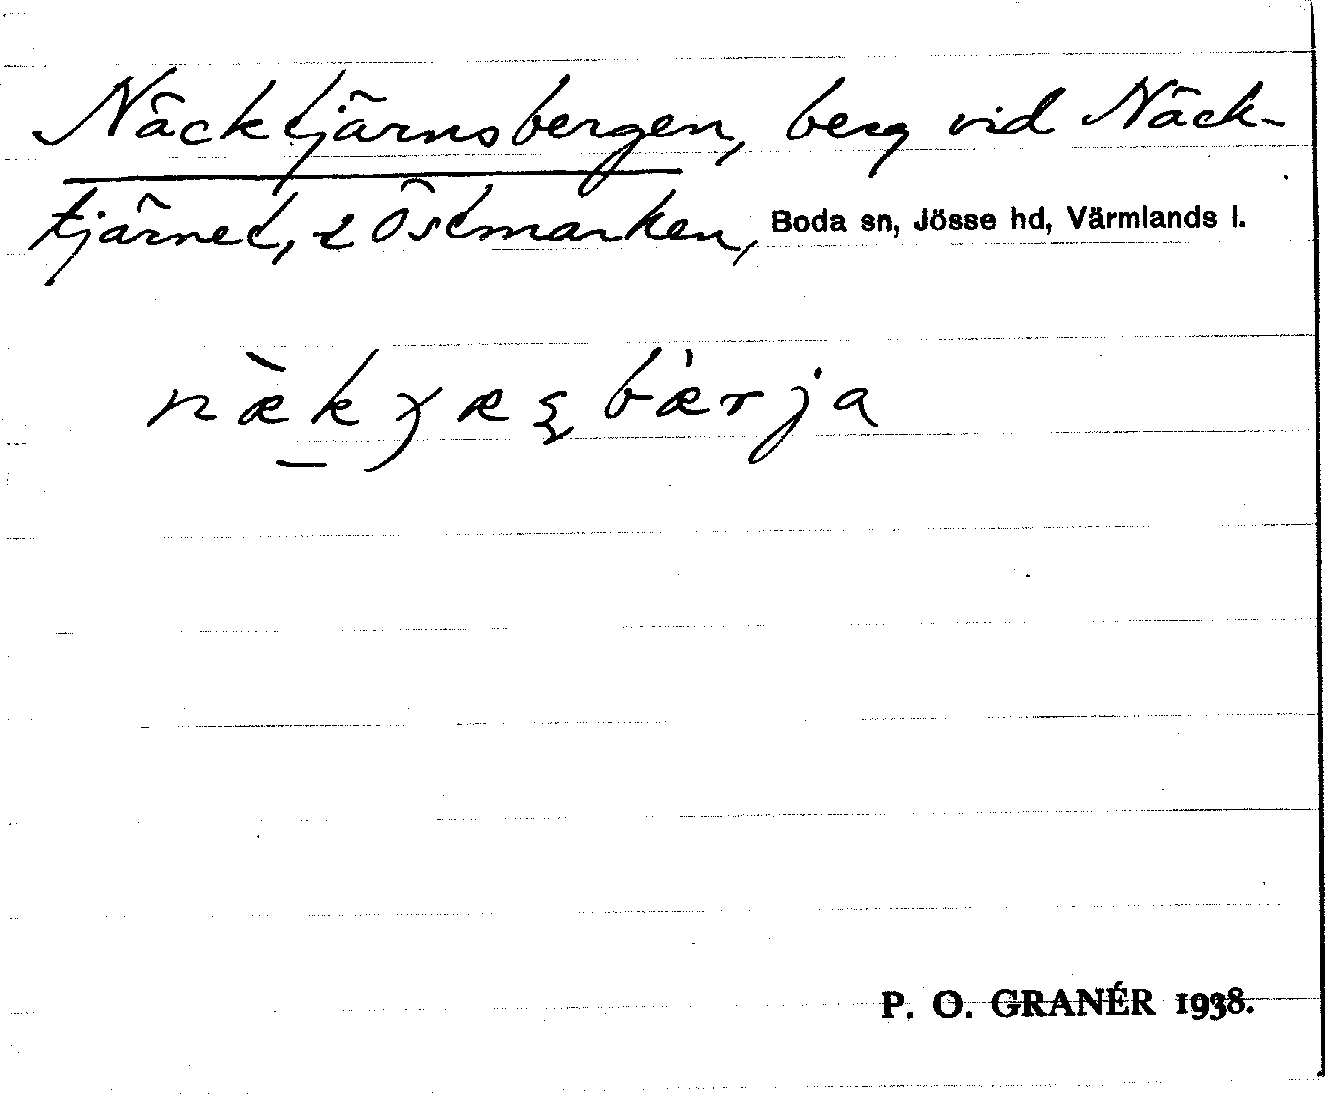 Näcktjärnsbergen, berg vid Näck-
tjärnet, i Östmarken, Boda sn, Jösse hd, Värmlands l.
P. O. GRANÉR 1938.